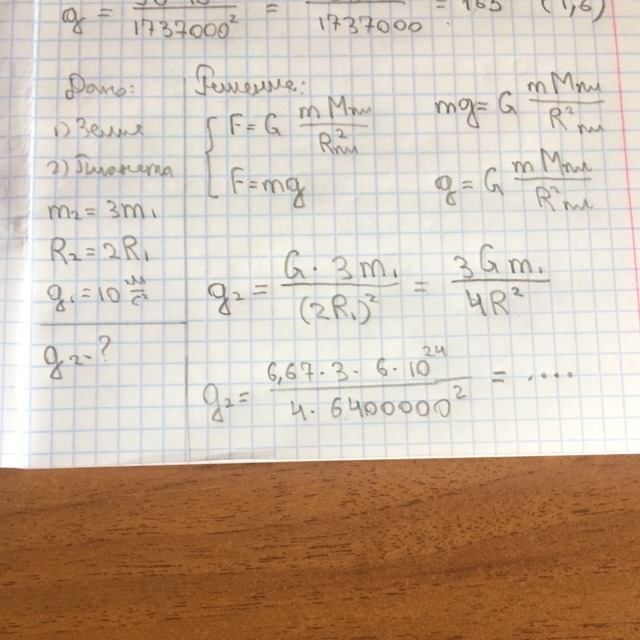 g = 1737000² = 1737000 = 163 (1,6)
Дано:
1) Земля
2) Планета
m₂ = 3m₁
R₂ = 2R₁
g₁ = 10 м/с²
g₂ - ?
Решение:
F = G m Mпл / R²пл
F = mg
mg = G m Mпл / R²пл
g = G m Mпл / R²пл
g₂ = G · 3 m₁ / (2R₁)² = 3 G m₁ / 4R²
g₂ = 6,67 · 3 · 6 · 10²⁴ / 4 · 6400000² = ....